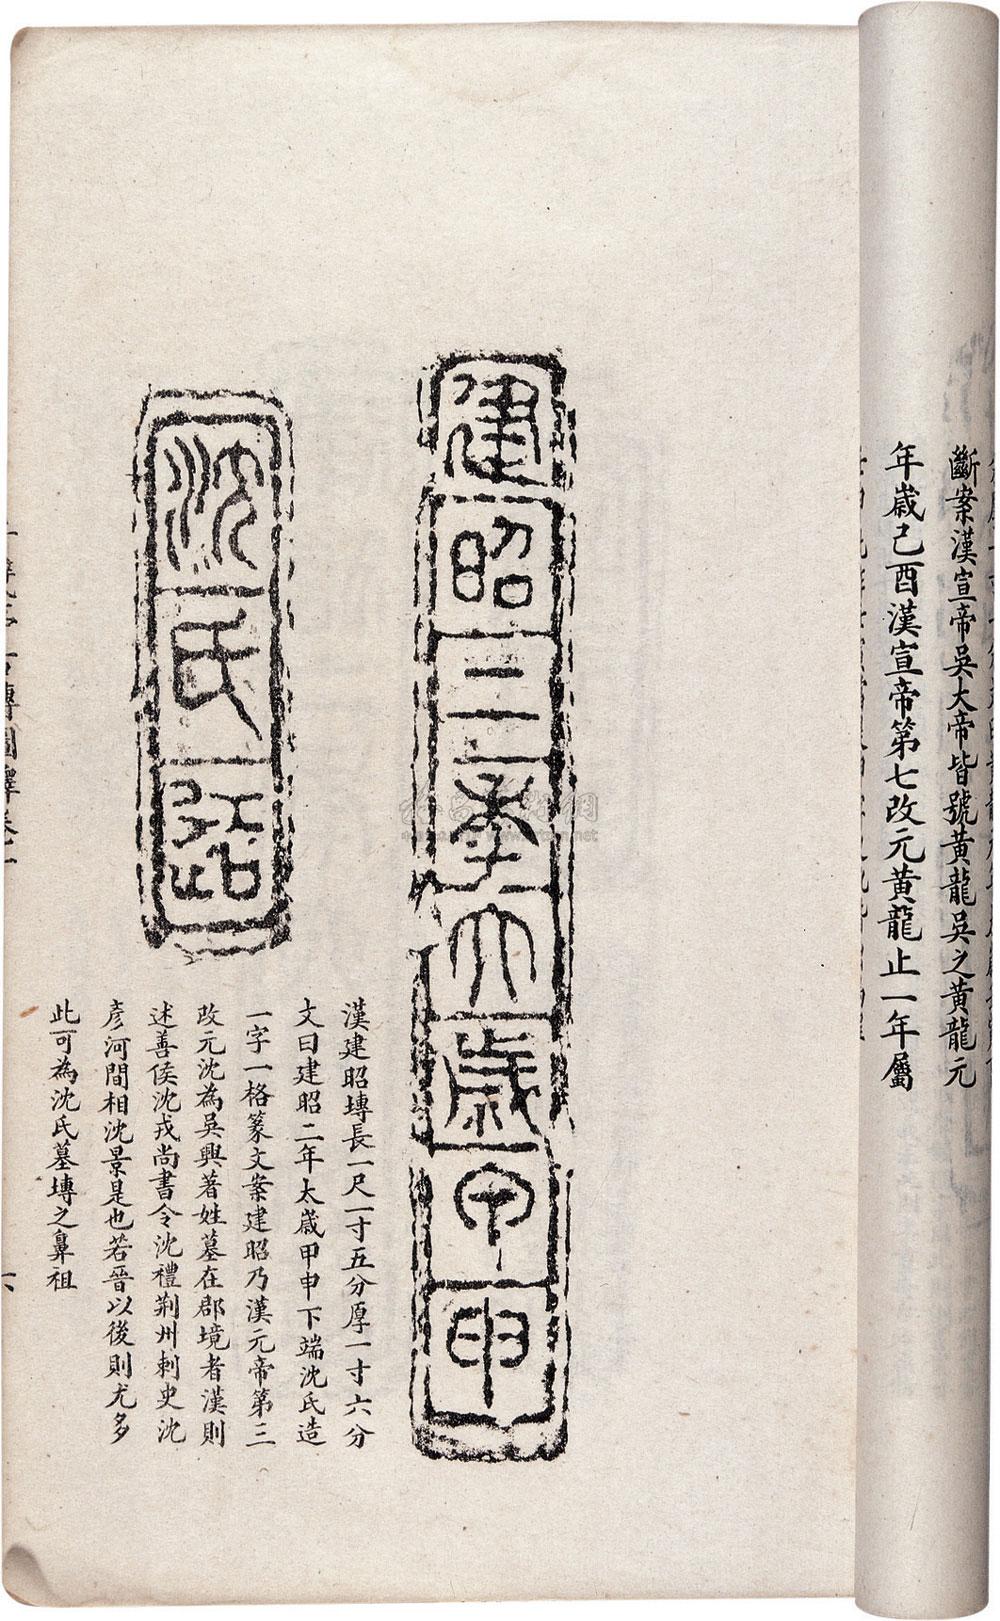 斷案漢宣帝吳大帝皆號黃龍吳之黃龍元
年歲己酉漢宣帝第七改元黃龍止一年屬
建昭二年大歲甲申
沈氏造
漢建昭塼長一尺一寸五分厚一寸六分
文曰建昭二年太歲甲申下端沈氏造
一字一格篆文案建昭乃漢元帝第三
改元沈為吳興著姓墓在郡境者漢則
述善侯沈戎尚書令沈禮荊州刺史沈
彥河間相沈景是也若晉以後則尤多
此可為沈氏墓塼之鼻祖